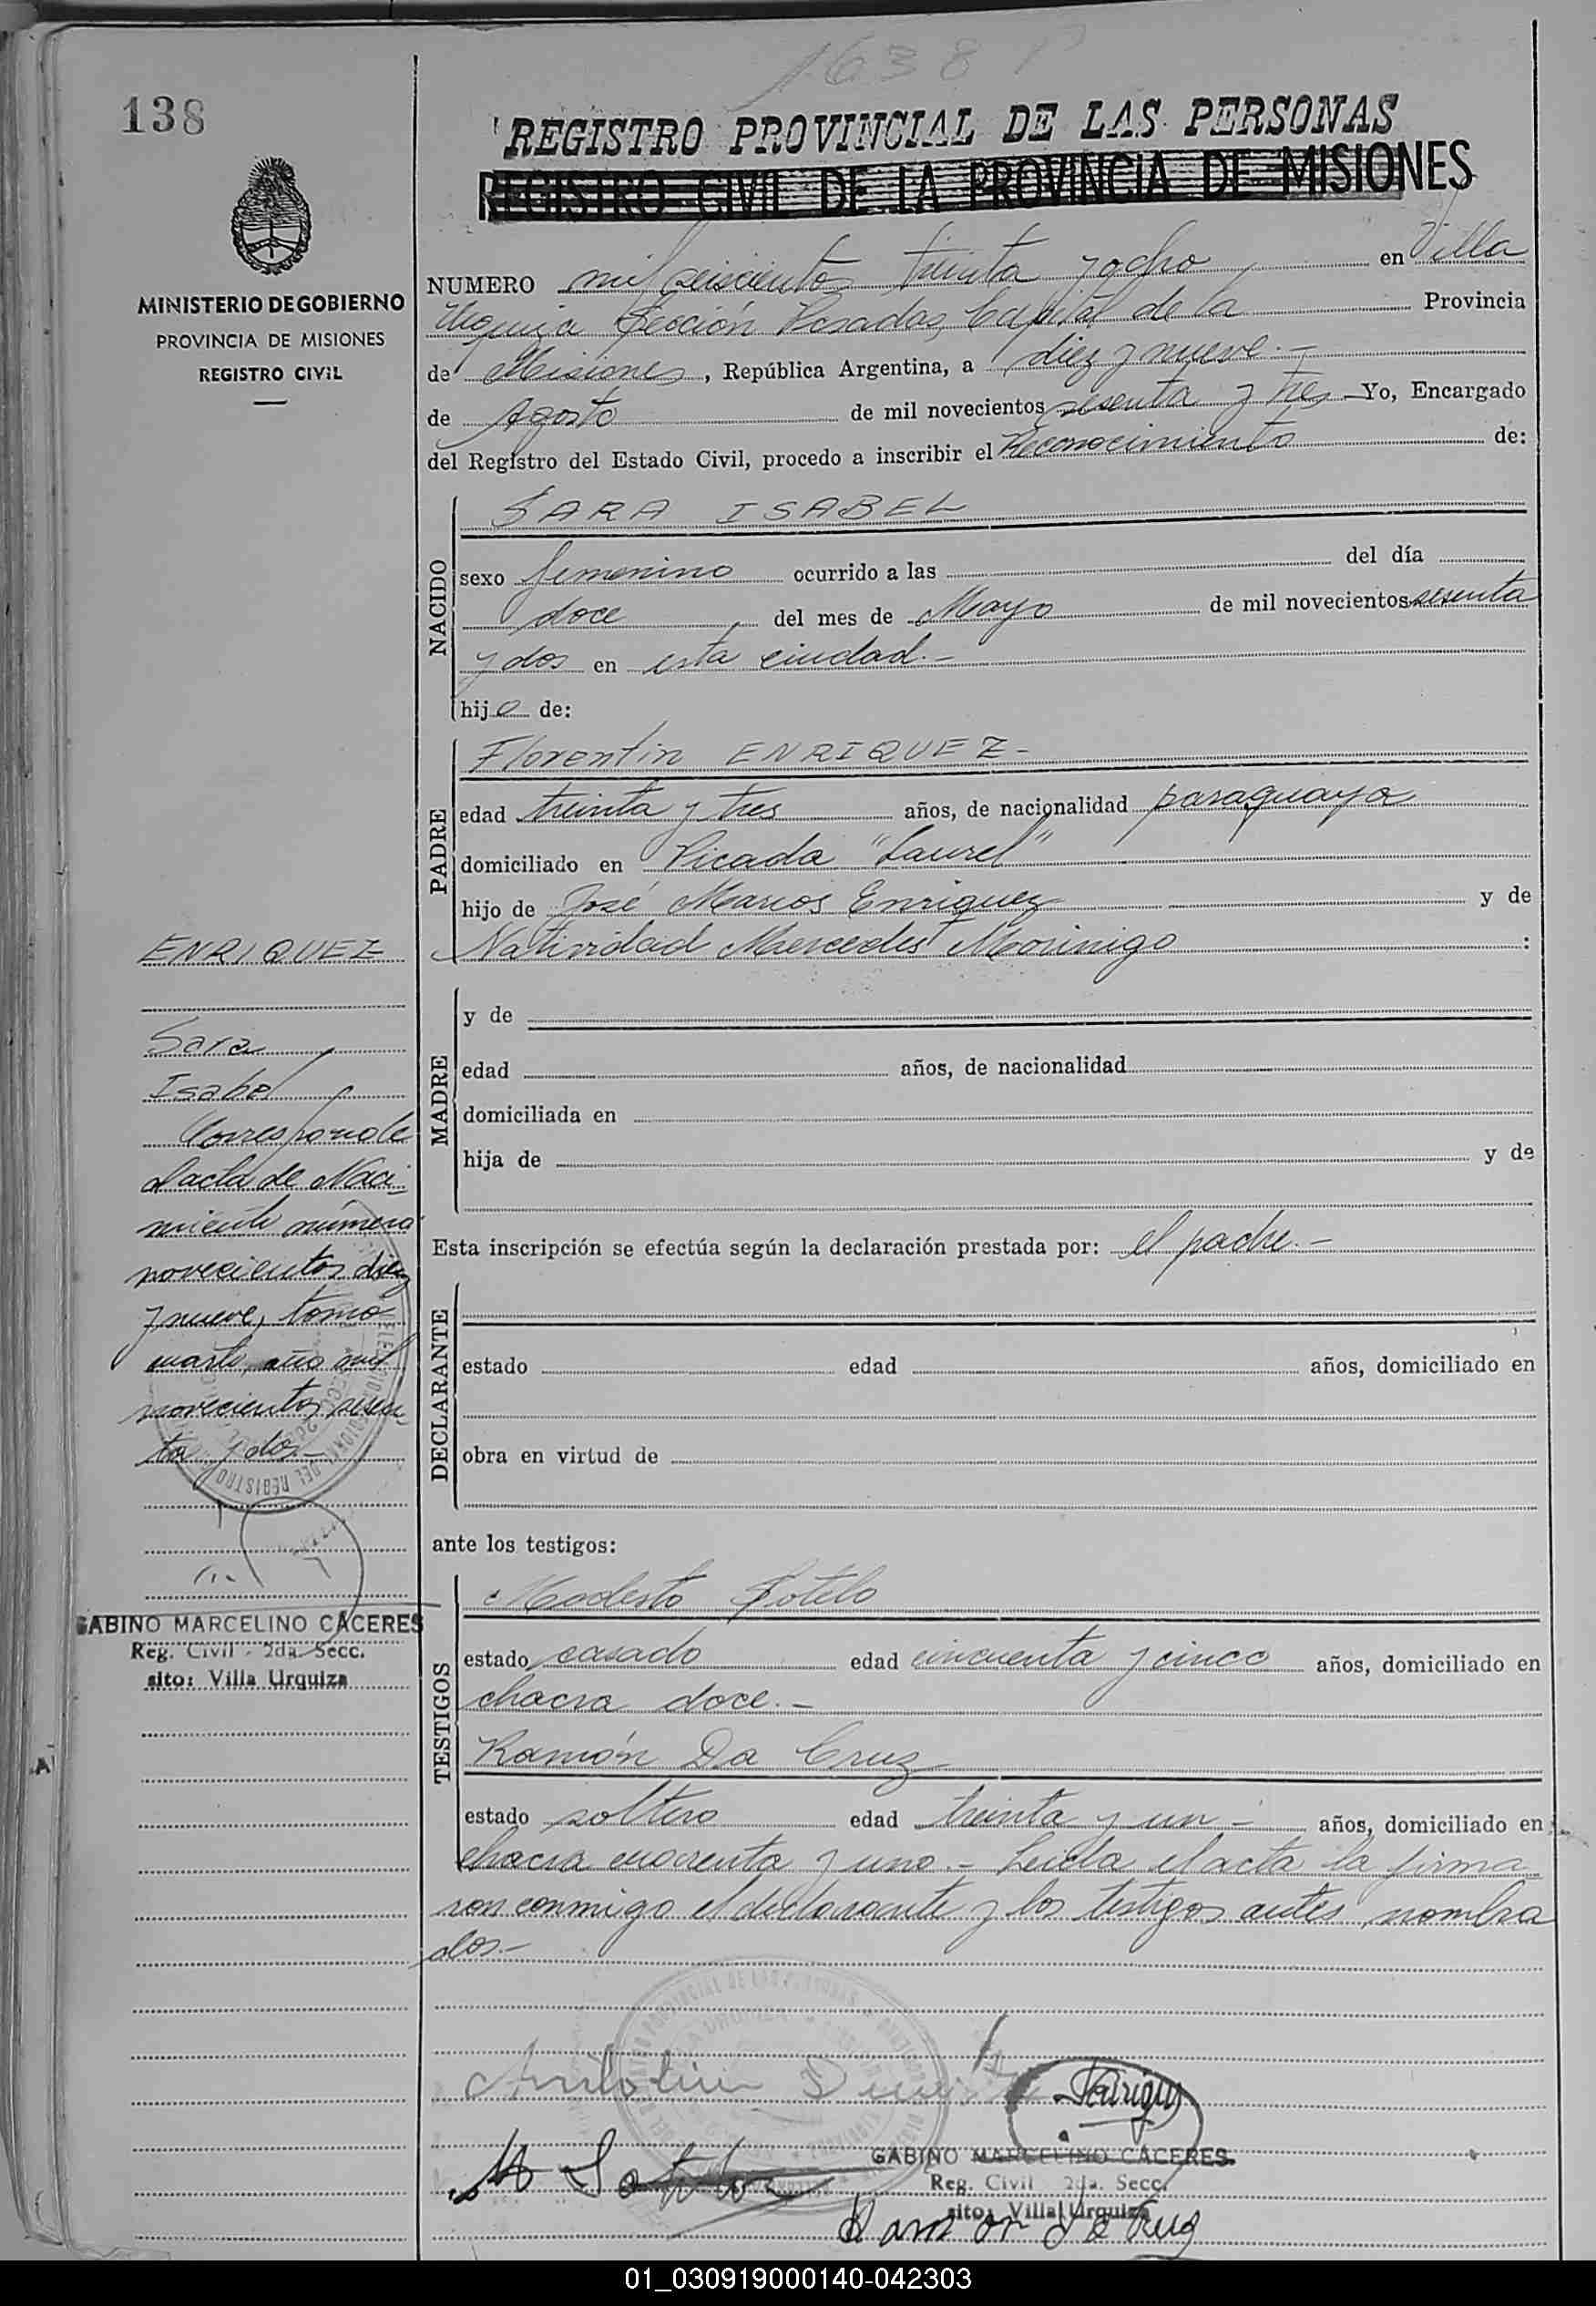 1638
138
REGISTRO PROVINCIAL DE LAS PERSONAS
REGISTRO CIVIL DE LA PROVINCIA DE MISIONES
MINISTERIO DE GOBIERNO
PROVINCIA DE MISIONES
REGISTRO CIVIL
NUMERO mil seiscientos treinta y ocho en Villa
Urquiza Sección Posadas, Capital de la Provincia
de Misiones, República Argentina, a diez y nueve.-
de Agosto de mil novecientos sesenta y tres Yo, Encargado
del Registro del Estado Civil, procedo a inscribir el Reconocimiento de:
NACIDO
SARA ISABEL
sexo femenino ocurrido a las del día
doce del mes de Mayo de mil novecientos sesenta
y dos en esta ciudad.-
hija de:
PADRE
Florentin ENRIQUEZ-
edad treinta y tres años, de nacionalidad paraguaya
domiciliado en Picada "Laurel"
hijo de José Marcos Enriquez y de
Natividad Mercedes Morinigo :
MADRE
y de
edad años, de nacionalidad
domiciliada en
hija de y de
Esta inscripción se efectúa según la declaración prestada por: el padre.-
DECLARANTE
estado edad años, domiciliado en
obra en virtud de
ante los testigos:
TESTIGOS
Modesto Sotelo
estado casado edad cincuenta y cinco años, domiciliado en
chacra doce.-
Ramón Da Cruz
estado soltero edad treinta y un - años, domiciliado en
chacra cuarenta y uno.- Leida el acta la firma
ron conmigo el declarante y los testigos antes nombra
dos.-
ENRIQUEZ
Sara
Isabel
Corresponde
al acta de Naci-
miento número
novecientos diez
y nueve, tomo
cuarto, año mil
novecientos sesen
ta y dos.-
GABINO MARCELINO CACERES
Reg. Civil - 2da. Secc.
sito: Villa Urquiza
M Sotelo
GABINO MARCELINO CACERES
Reg. Civil 2da. Secc.
sito: Villa Urquiza
Ramon Da Cruz
01_030919000140-042303